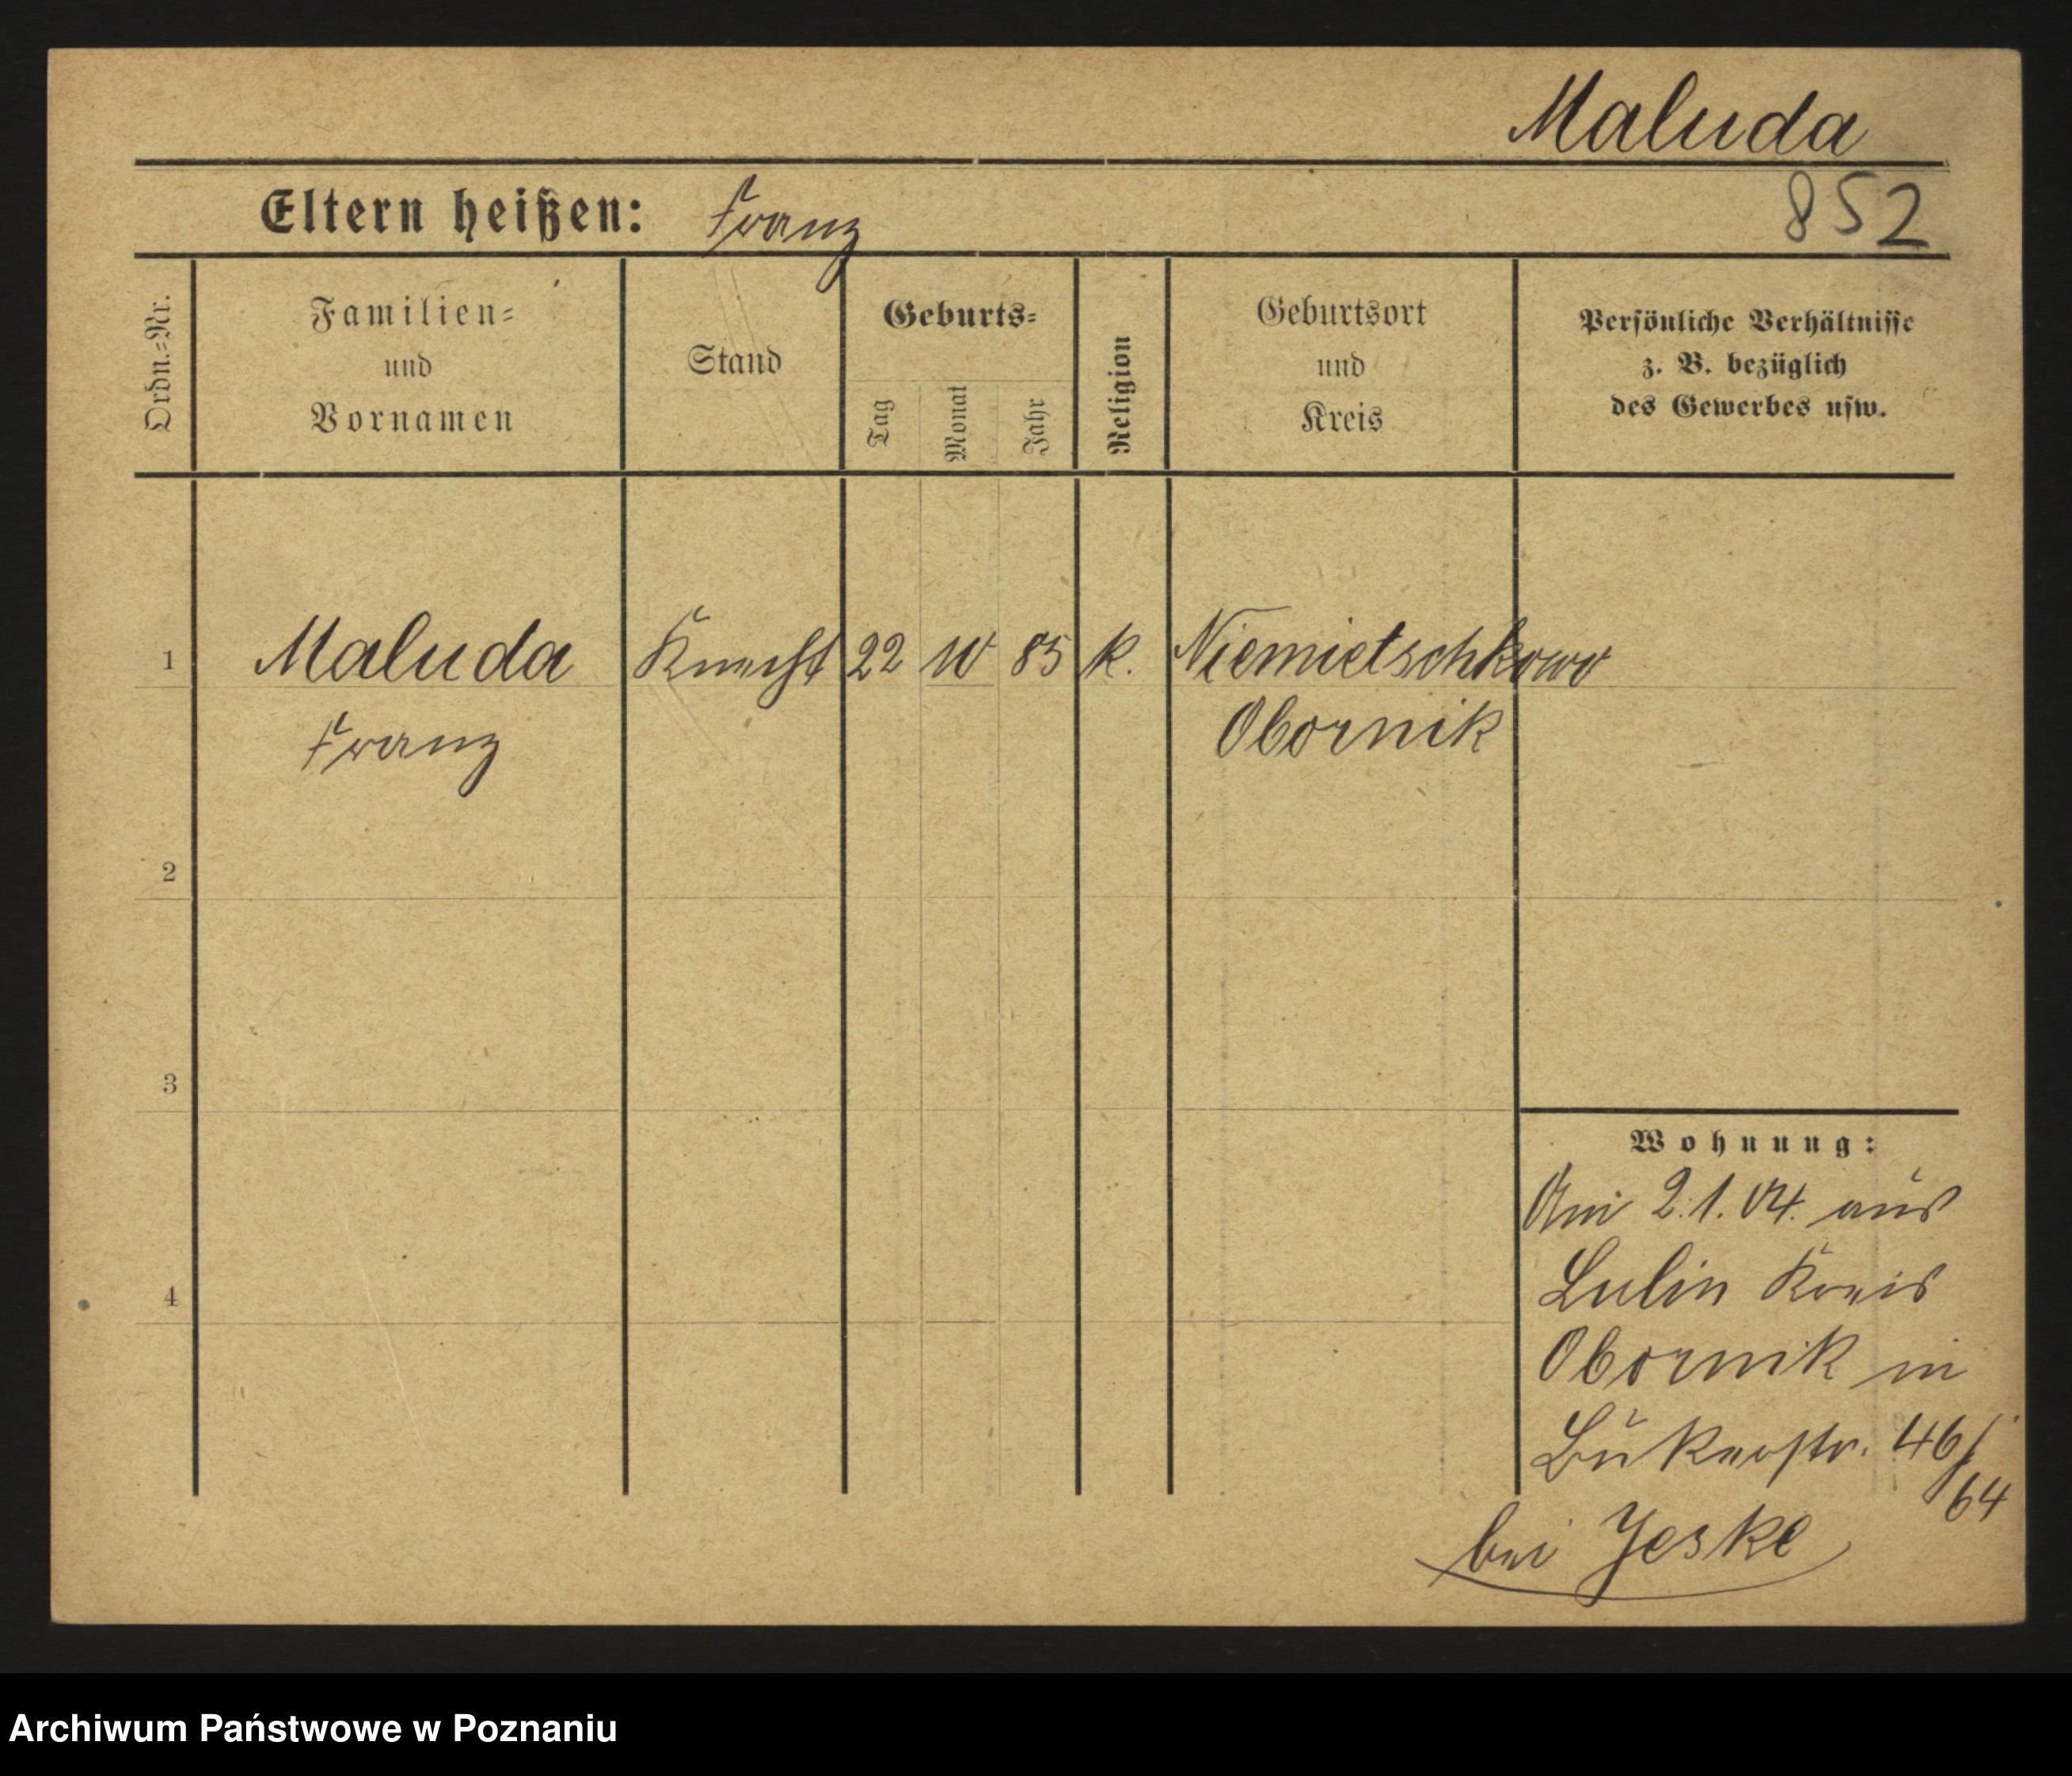 Maluda
852
Eltern heißen: Franz
Ordn.-Nr.
Familien-
und
Vornamen
Stand
Geburts-
Tag
Monat
Jahr
Religion
Geburtsort
und
Kreis
Persönliche Verhältnisse
z. B. bezüglich
des Gewerbes usw.
1 Maluda Knecht 22 10 85 k. Niemietschkowo
Franz Obornik
2
3
4
Wohnung:
Am 2.1.04. aus
Lulin Kreis
Obornik in
Bukerstr. 46/
64
bei Jeske
Archiwum Państwowe w Poznaniu